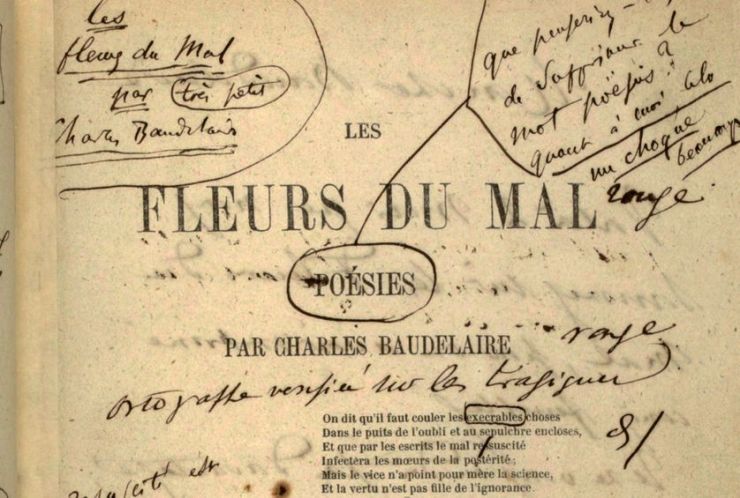 les
fleurs du Mal
par très petit
Charles Baudelaire
que penseriez-
de supprimer le
mot poësies?
quant à moi cela
me choque
beaucoup
LES
FLEURS DU MAL
rouge
POÉSIES
PAR CHARLES BAUDELAIRE
rouge
ortographe verifiée sur les tragiques
On dit qu'il faut couler les execrables choses
Dans le puits de l'oubli et au sepulchre encloses,
Et que par les escrits le mal ressuscité
Infectera les mœurs de la postérité;
Mais le vice n'a point pour mère la science,
Et la vertu n'est pas fille de l'ignorance.
est